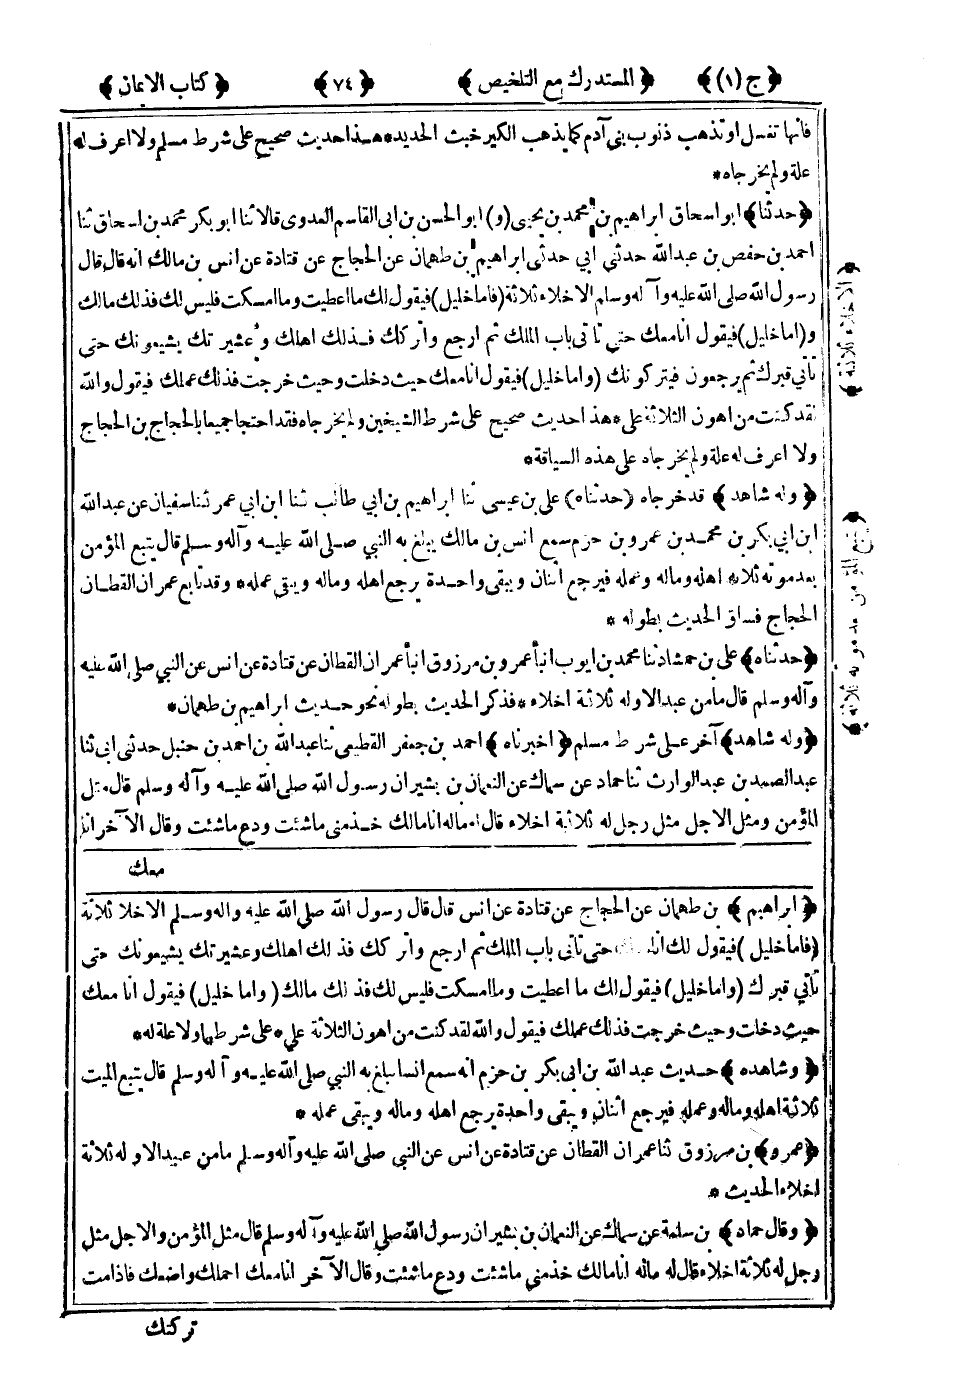 ﴿ ج (١) ﴾ ﴿ المستدرك مع التلخيص ﴾ ﴿ ٧٤ ﴾ ﴿ كتاب الايمان ﴾
فانها تغسل او تذهب ذنوب بني آدم كما يذهب الكير خبث الحديد * هذا حديث صحيح على شرط مسلم ولا اعرف له
علة ولم يخرجاه *
﴿ حدثنا ﴾ ابو اسحاق ابراهيم بن محمد بن يحيى (و) ابو الحسن بن ابى القاسم العدوى قالا ثنا ابو بكر محمد بن اسحاق ثنا
احمد بن حفص بن عبد الله حدثني ابي حدثنى ابراهيم بن طهمان عن الحجاج عن قتادة عن انس بن مالك انه قال قال
رسول الله صلى الله عليه وآله وسلم الاخلاء ثلاثة (فاما خليل) فيقول لك ما اعطيت وما امسكت فليس لك فذلك مالك
و (اما خليل) فيقول انا معك حتى تأتى باب الملك ثم ارجع واتركك فذلك اهلك وعشيرتك يشيعونك حتى
تأتي قبرك ثم يرجعون فيتركونك (واما خليل) فيقول انا معك حيث دخلت وحيث خرجت فذلك عملك فيقول والله
لقد كنت من اهون الثلاثة على * هذا حديث صحيح على شرط الشيخين ولم يخرجاه فقد احتجا جميعا بالحجاج بن الحجاج
ولا اعرف له علة ولم يخرجاه على هذه السياقة *
﴿ وله شاهد ﴾ قد خرجاه (حدثناه) على بن عيسى ثنا ابراهيم بن ابي طالب ثنا ابن ابي عمر ثنا سفيان عن عبد الله
ابن ابي بكر بن محمد بن عمرو بن حزم سمع انس بن مالك يبلغ به النبي صلى الله عليه وآله وسلم قال يتبع المؤمن
بعد موته ثلاثة اهله وماله وعمله فيرجع اثنان ويبقى واحدة يرجع اهله وماله ويبقى عمله * وقد تابع عمران القطان
الحجاج فساق الحديث بطوله *
﴿ حدثناه ﴾ على بن حمشاد ثنا محمد بن ايوب انبأ عمرو بن مرزوق انبأ عمران القطان عن قتادة عن انس عن النبي صلى الله عليه
وآله وسلم قال ما من عبد الا وله ثلاثة اخلاء * فذكر الحديث بطوله نحو حديث ابراهيم بن طهمان *
﴿ وله شاهد ﴾ آخر على شرط مسلم ﴿ اخبرناه ﴾ احمد بن جعفر القطيعى ثنا عبد الله بن احمد بن حنبل حدثنى ابى ثنا
عبد الصمد بن عبد الوارث ثنا حماد عن سماك عن النعمان بن بشير ان رسول الله صلى الله عليه وآله وسلم قال مثل
المؤمن ومثل الاجل مثل رجل له ثلاثة اخلاء قال له ماله انا مالك خذ منى ما شئت ودع ما شئت وقال الآخر انا
معك
﴿ ابراهيم ﴾ بن طهمان عن الحجاج عن قتادة عن انس قال قال رسول الله صلى الله عليه وآله وسلم الاخلا ثلاثة
(فاما خليل) فيقول لك انا حتى تأتى باب الملك ثم ارجع واتركك فذلك اهلك وعشيرتك يشيعونك حتى
تأتي قبرك (واما خليل) فيقول لك ما اعطيت وما امسكت فليس لك فذلك مالك (واما خليل) فيقول انا معك
حيث دخلت وحيث خرجت فذلك عملك فيقول والله لقد كنت من اهون الثلاثة علي * على شرطهما ولا علة له *
﴿ وشاهده ﴾ حديث عبد الله بن ابى بكر بن حزم انه سمع انسا يبلغ به النبي صلى الله عليه وآله وسلم قال يتبع الميت
ثلاثة اهله وماله وعمله فيرجع اثنان ويبقى واحدة يرجع اهله وماله ويبقى عمله *
﴿ عمرو ﴾ بن مرزوق ثنا عمران القطان عن قتادة عن انس عن النبي صلى الله عليه وآله وسلم ما من عبد الا وله ثلاثة
اخلاء الحديث *
﴿ وقال حماد ﴾ بن سلمة عن سماك عن النعمان بن بشير ان رسول الله صلى الله عليه وآله وسلم قال مثل المؤمن والاجل مثل
رجل له ثلاثة اخلاء قال له ماله انا مالك خذ منى ما شئت ودع ما شئت وقال الآخر انا معك احملك واضعك فاذا مت
تركتك
﴿ الاخلاء ثلاثة ﴾
﴿ يتبع المؤمن بعد موته ثلاثة ﴾